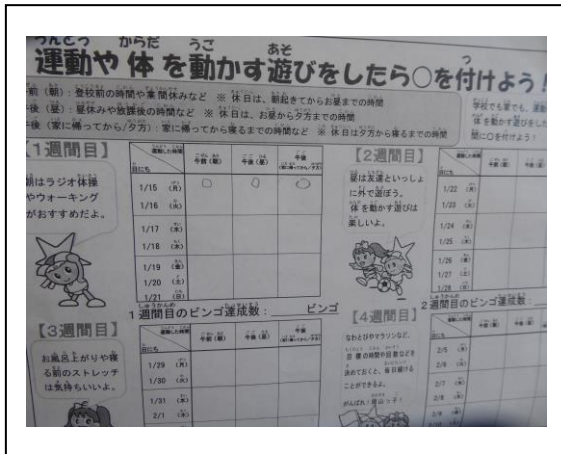 運動や体を動かす遊びをしたら○を付けよう！
前（朝）：登校前の時間や業間休みなど ※休日は、朝起きてからお昼までの時間
後（昼）：昼休みや放課後の時間など ※休日は、お昼から夕方までの時間
後（家に帰ってから/夕方）：家に帰ってから寝るまでの時間など ※休日は夕方から寝るまでの時間
学校でも家でも、運動
体を動かす遊びをした
間に○を付けよう！
【1週間目】
朝はラジオ体操
やウォーキング
がおすすめだよ。
運動した時間
日にち
午前（朝） 午後（昼） 午後
（家に帰ってから/夕方）
1/15（月） ○ ○ ○
1/16（火）
1/17（水）
1/18（木）
1/19（金）
1/20（土）
1/21（日）
1週間目のビンゴ達成数：＿＿＿ビンゴ
【2週間目】
昼は友達といっしょ
に外で遊ぼう。
体を動かす遊びは
楽しいよ。
運動した時間
日にち
午前（朝） 午後（昼）
1/22（月）
1/23（火）
1/24（水）
1/25（木）
1/26（金）
1/27（土）
1/28（日）
2週間目のビンゴ達成数：
【3週間目】
お風呂上がりや寝
る前のストレッチ
は気持ちいいよ。
運動した時間
日にち
午前（朝） 午後（昼） 午後
（家に帰ってから/夕方）
1/29（月）
1/30（火）
1/31（水）
2/1（木）
【4週間目】
なわとびやマラソンなど、
目標の時間や回数などを
決めておくと、毎日続ける
ことができるよ。
がんばれ！
運動した時間
日にち
午前（朝） 午後（昼）
2/5（月）
2/6（火）
2/7（水）
2/8（木）